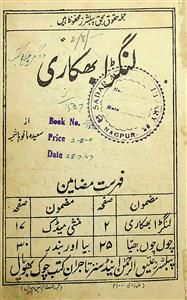 جملہ حقوق بحق پبلشر محفوظ ہیں
لنگڑا بھکاری
SADAR
NAGPUR
Book No.
Price 2-8-0
Date 28-7-67
فہرست مضامین
مضمون صفحہ مضمون صفحہ
لنگڑا بھکاری ۲ منشی مینڈک ۱۷
چوں چوں ۲۵ بیا اور بندر ۳۰
پبلشر عتیق الرحمٰن اینڈ سنز تاجران کتب چوک بھوپال